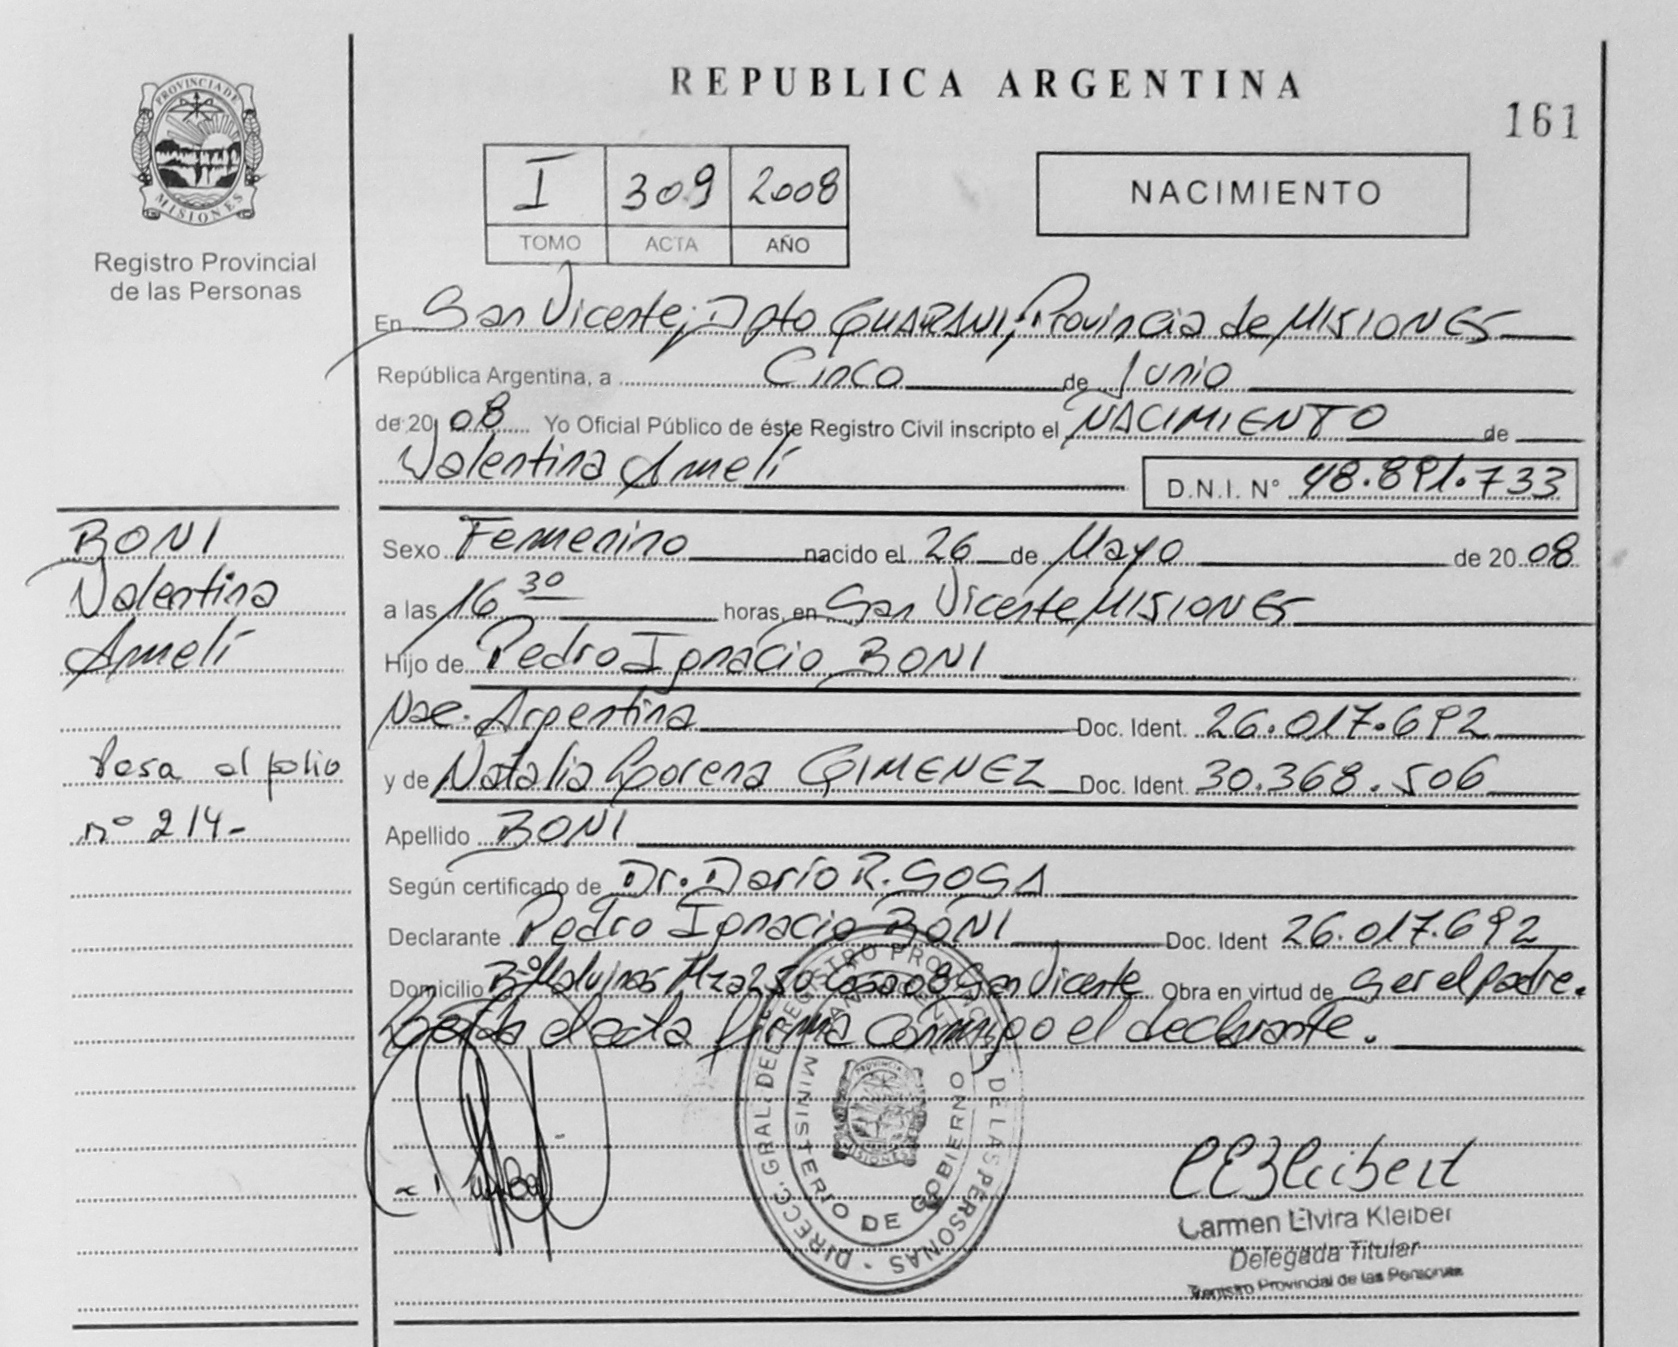 PROVINCIA DE
MISIONES
Registro Provincial
de las Personas
REPUBLICA ARGENTINA
161
I 309 2008
TOMO ACTA AÑO
NACIMIENTO
En San Vicente, Dpto GUARANI, Provincia de MISIONES
República Argentina, a Cinco de Junio
de 20 08 Yo Oficial Público de éste Registro Civil inscripto el NACIMIENTO de
Valentina Amelí D.N.I. N° 48.891.733
BONI
Valentina
Amelí
Pasa al folio
n° 214-
Sexo Femenino nacido el 26 de Mayo de 20 08
a las 16 30 horas, en San Vicente MISIONES
Hijo de Pedro Ignacio BONI
Nac. Argentina Doc. Ident. 26.017.692
y de Natalia Lorena GIMENEZ Doc. Ident. 30.368.506
Apellido BONI
Según certificado de Dr. Darío R. SOSA
Declarante Pedro Ignacio BONI Doc. Ident 26.017.692
Domicilio B° Malvinas Mza 250 Casa 08 San Vicente Obra en virtud de Ser el padre.
el acta firma conmigo el declarante.
DIRECC. GRAL. DEL REGISTRO PROVINCIAL DE LAS PERSONAS
MINISTERIO DE GOBIERNO
PROVINCIA
MISIONES
CEKleibert
Carmen Elvira Kleiber
Delegada Titular
Registro Provincial de las Personas